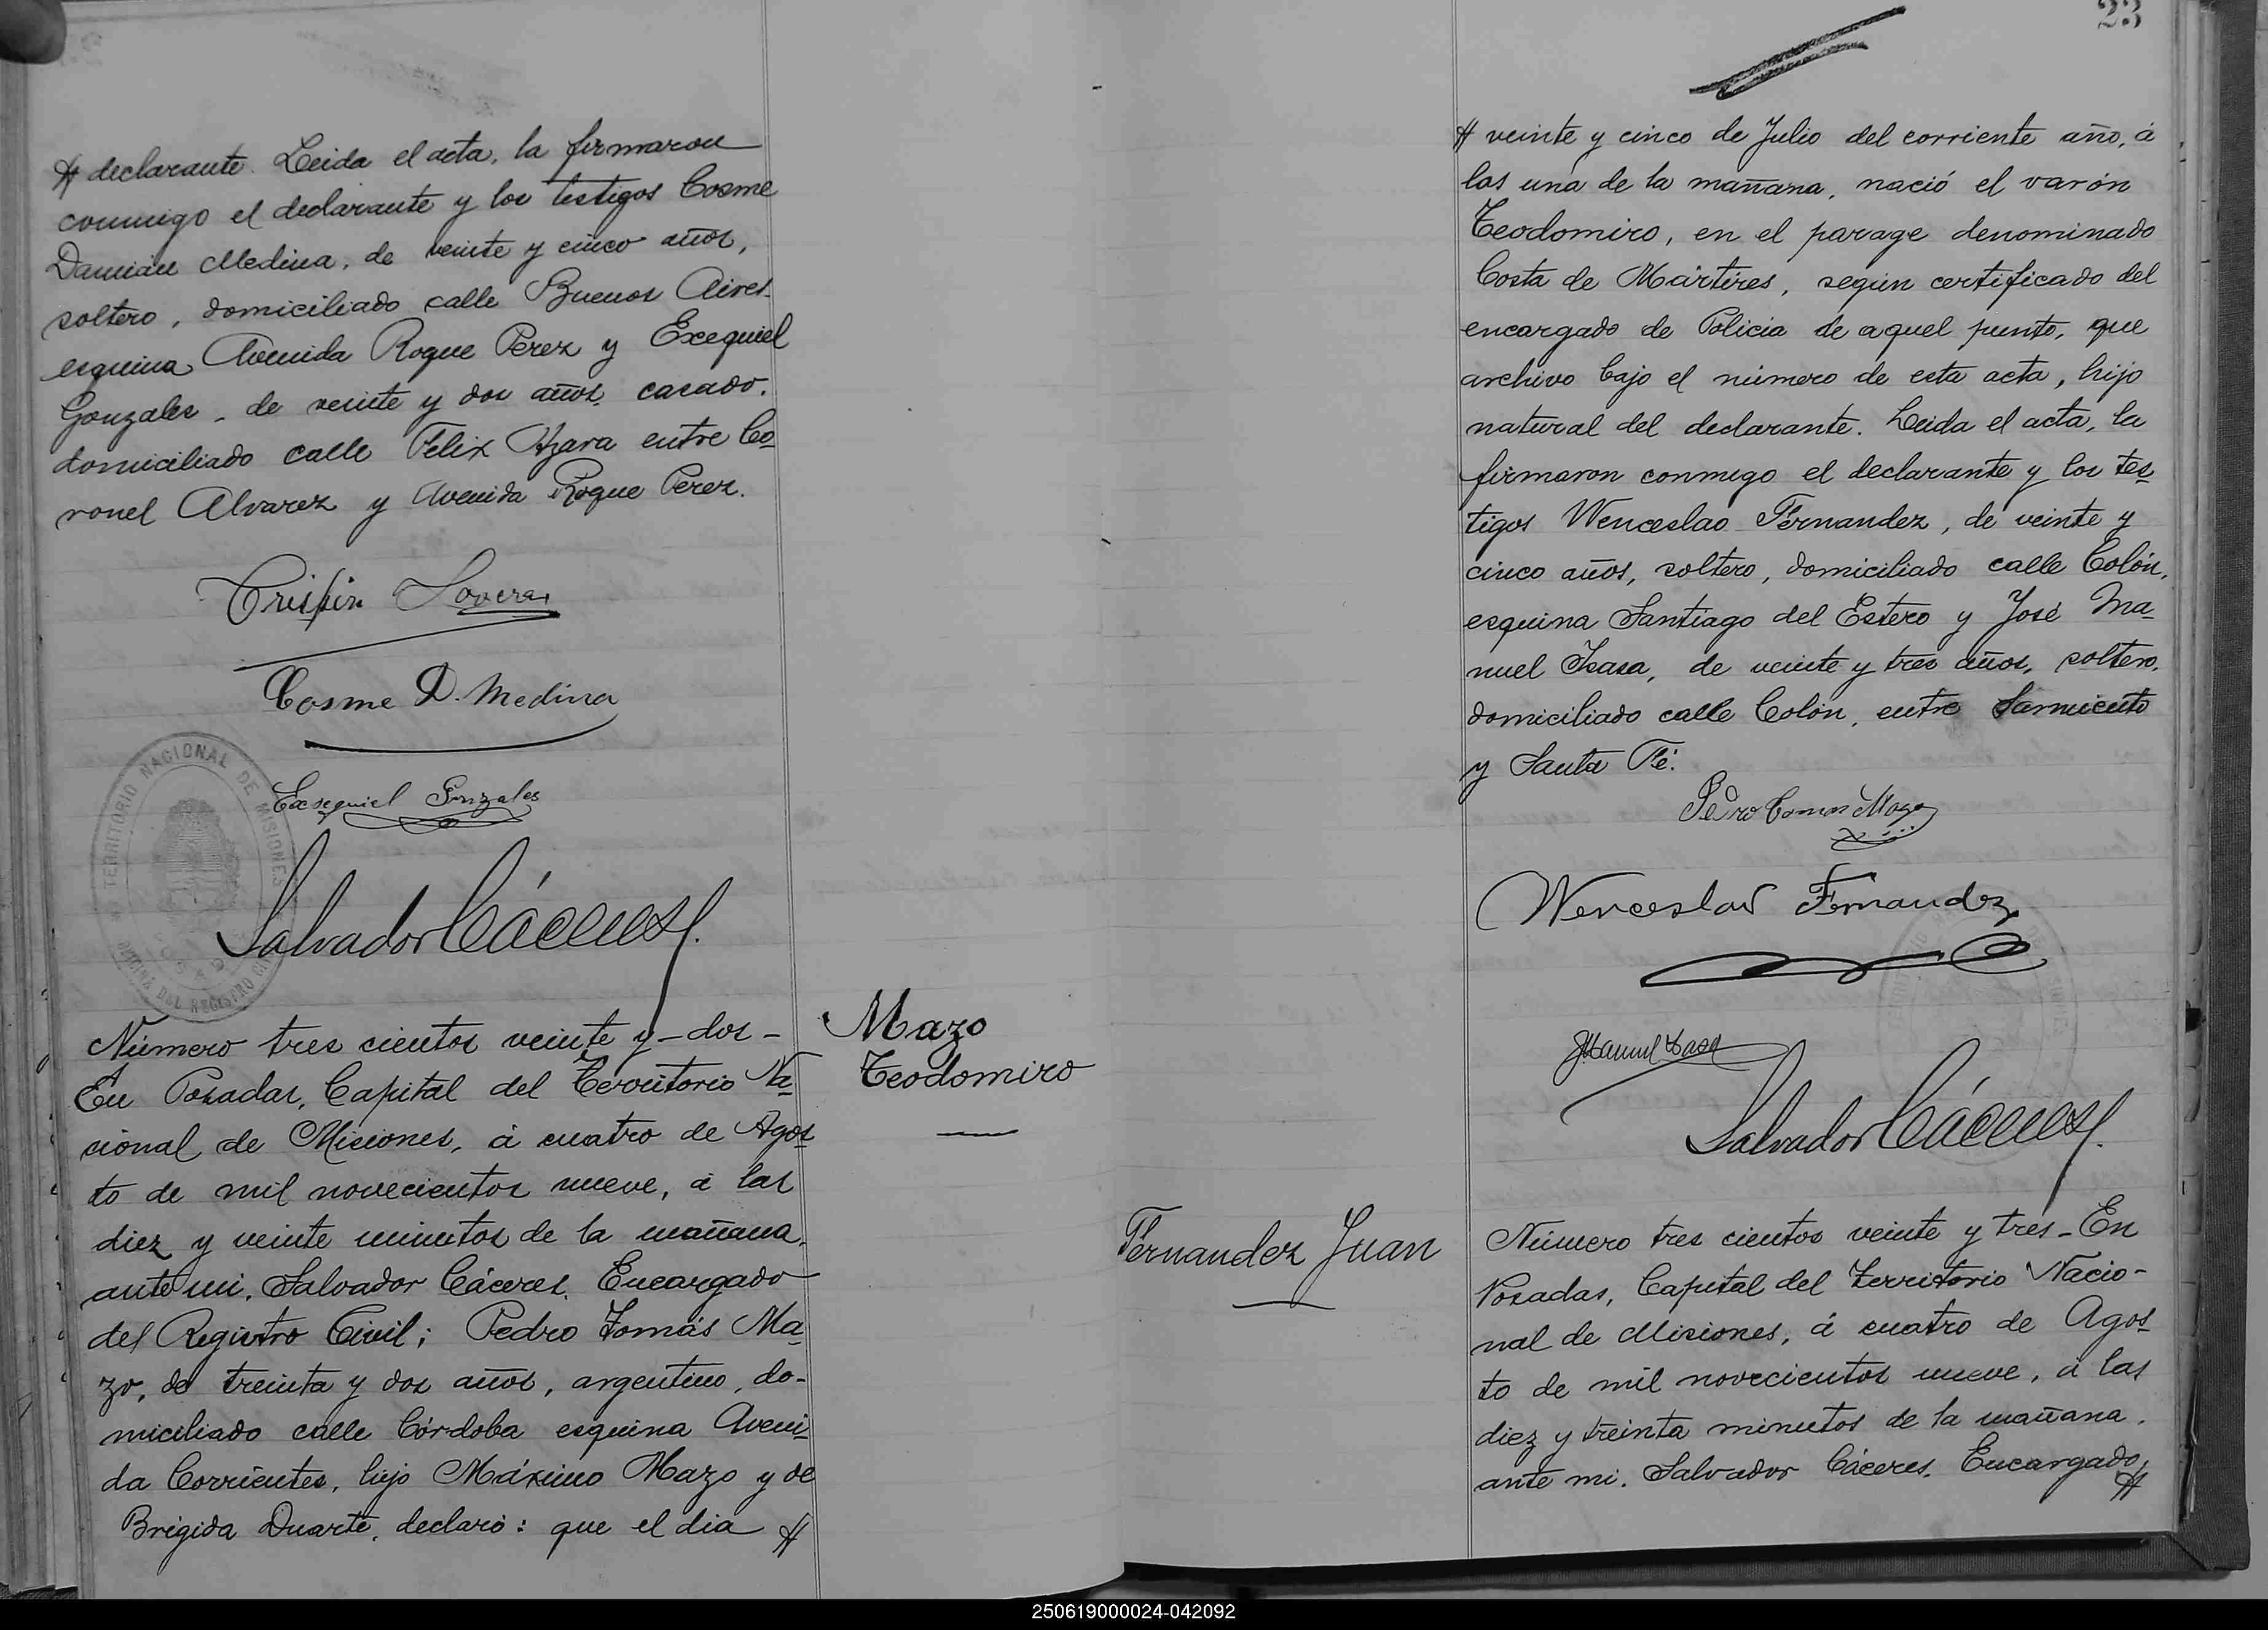 # declarante. Leida el acta, la firmaron
conmigo el declarante y los testigos Cosme
Damián Medina, de veinte y cinco años,
soltero, domiciliado calle Buenos Aires
esquina Avenida Roque Perez y Exequiel
Gonzales, de veinte y dos años, casado,
domiciliado calle Felix Azara entre Co-
ronel Alvarez y Avenida Roque Perez.
Crispin Lovera
Cosme D. Medina
Exsequiel Gonzales
TERRITORIO NACIONAL DE MISIONES
OFICINA DEL REGISTRO CIVIL
POSADAS
Salvador Cáceres
Número tres cientos veinte y - dos -
En Posadas, Capital del Territorio Na-
cional de Misiones, á cuatro de Agos-
to de mil novecientos nueve, á las
diez y veinte minutos de la mañana,
ante mi, Salvador Cáceres, Encargado
del Registro Civil; Pedro Tomás Ma-
zo, de treinta y dos años, argentino, do-
miciliado calle Córdoba esquina Aveni-
da Corrientes, hijo Máximo Mazo y de
Brígida Duarte, declaró: que el dia #
Mazo
Teodomiro
23
# veinte y cinco de Julio del corriente año, á
las una de la mañana, nació el varón
Teodomiro, en el parage denominado
Costa de Mártires, según certificado del
encargado de Policia de aquel punto, que
archivo bajo el número de esta acta, hijo
natural del declarante. Leida el acta, la
firmaron conmigo el declarante y los tes-
tigos Wenceslao Fernandez, de veinte y
cinco años, soltero, domiciliado calle Colón,
esquina Santiago del Estero y José Ma-
nuel Isasa, de veinte y tres años, soltero,
domiciliado calle Colón, entre Sarmiento
y Santa Fé.
Pedro Tomas Mazo
Wenceslao Fernandez
J. Manuel Isasa
Salvador Cáceres
Fernandez Juan
Número tres cientos veinte y tres - En
Posadas, Capital del Territorio Nacio-
nal de Misiones, á cuatro de Agos-
to de mil novecientos nueve, á las
diez y treinta minutos de la mañana,
ante mi, Salvador Cáceres, Encargado #
250619000024-042092